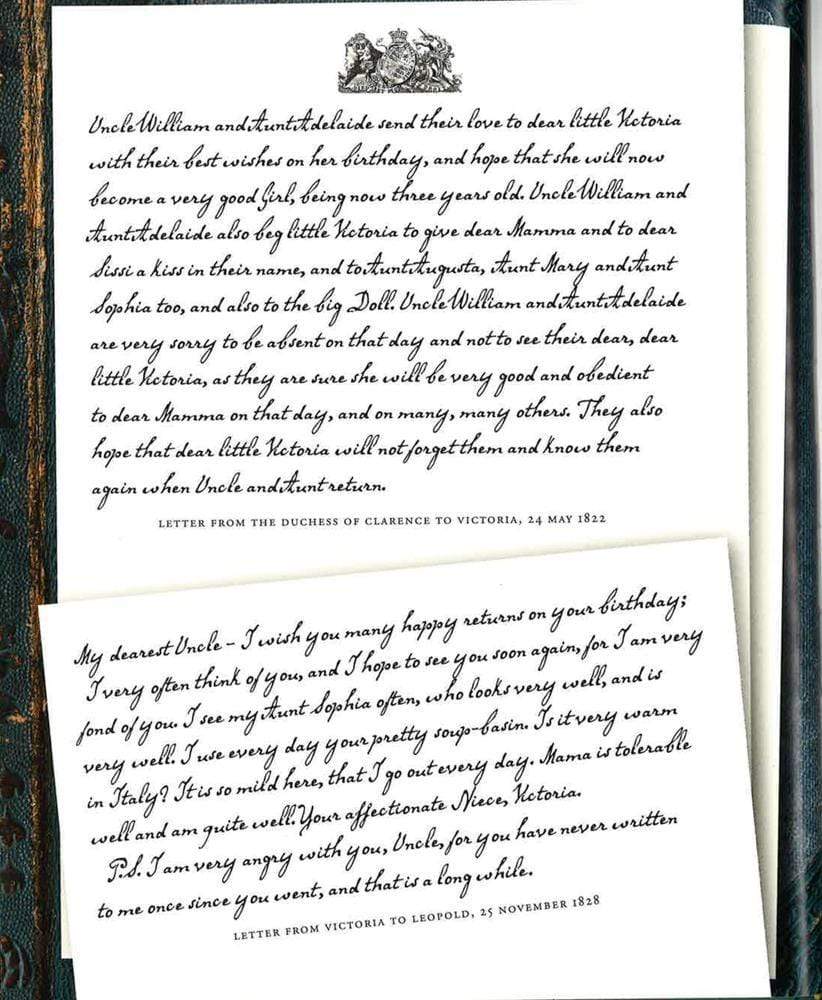 Uncle William and Aunt Adelaide send their love to dear little Victoria
with their best wishes on her birthday, and hope that she will now
become a very good Girl, being now three years old. Uncle William and
Aunt Adelaide also beg little Victoria to give dear Mamma and to dear
Sissi a kiss in their name, and to Aunt Augusta, Aunt Mary and Aunt
Sophia too, and also to the big Doll. Uncle William and Aunt Adelaide
are very sorry to be absent on that day and not to see their dear, dear
little Victoria, as they are sure she will be very good and obedient
to dear Mamma on that day, and on many, many others. They also
hope that dear little Victoria will not forget them and know them
again when Uncle and Aunt return.
LETTER FROM THE DUCHESS OF CLARENCE TO VICTORIA, 24 MAY 1822
My dearest Uncle – I wish you many happy returns on your birthday;
I very often think of you, and I hope to see you soon again, for I am very
fond of you. I see my Aunt Sophia often, who looks very well, and is
very well. I use every day your pretty soup-basin. Is it very warm
in Italy? It is so mild here, that I go out every day. Mama is tolerable
well and am quite well. Your affectionate Niece, Victoria.
P.S. I am very angry with you, Uncle, for you have never written
to me once since you went, and that is a long while.
LETTER FROM VICTORIA TO LEOPOLD, 25 NOVEMBER 1828